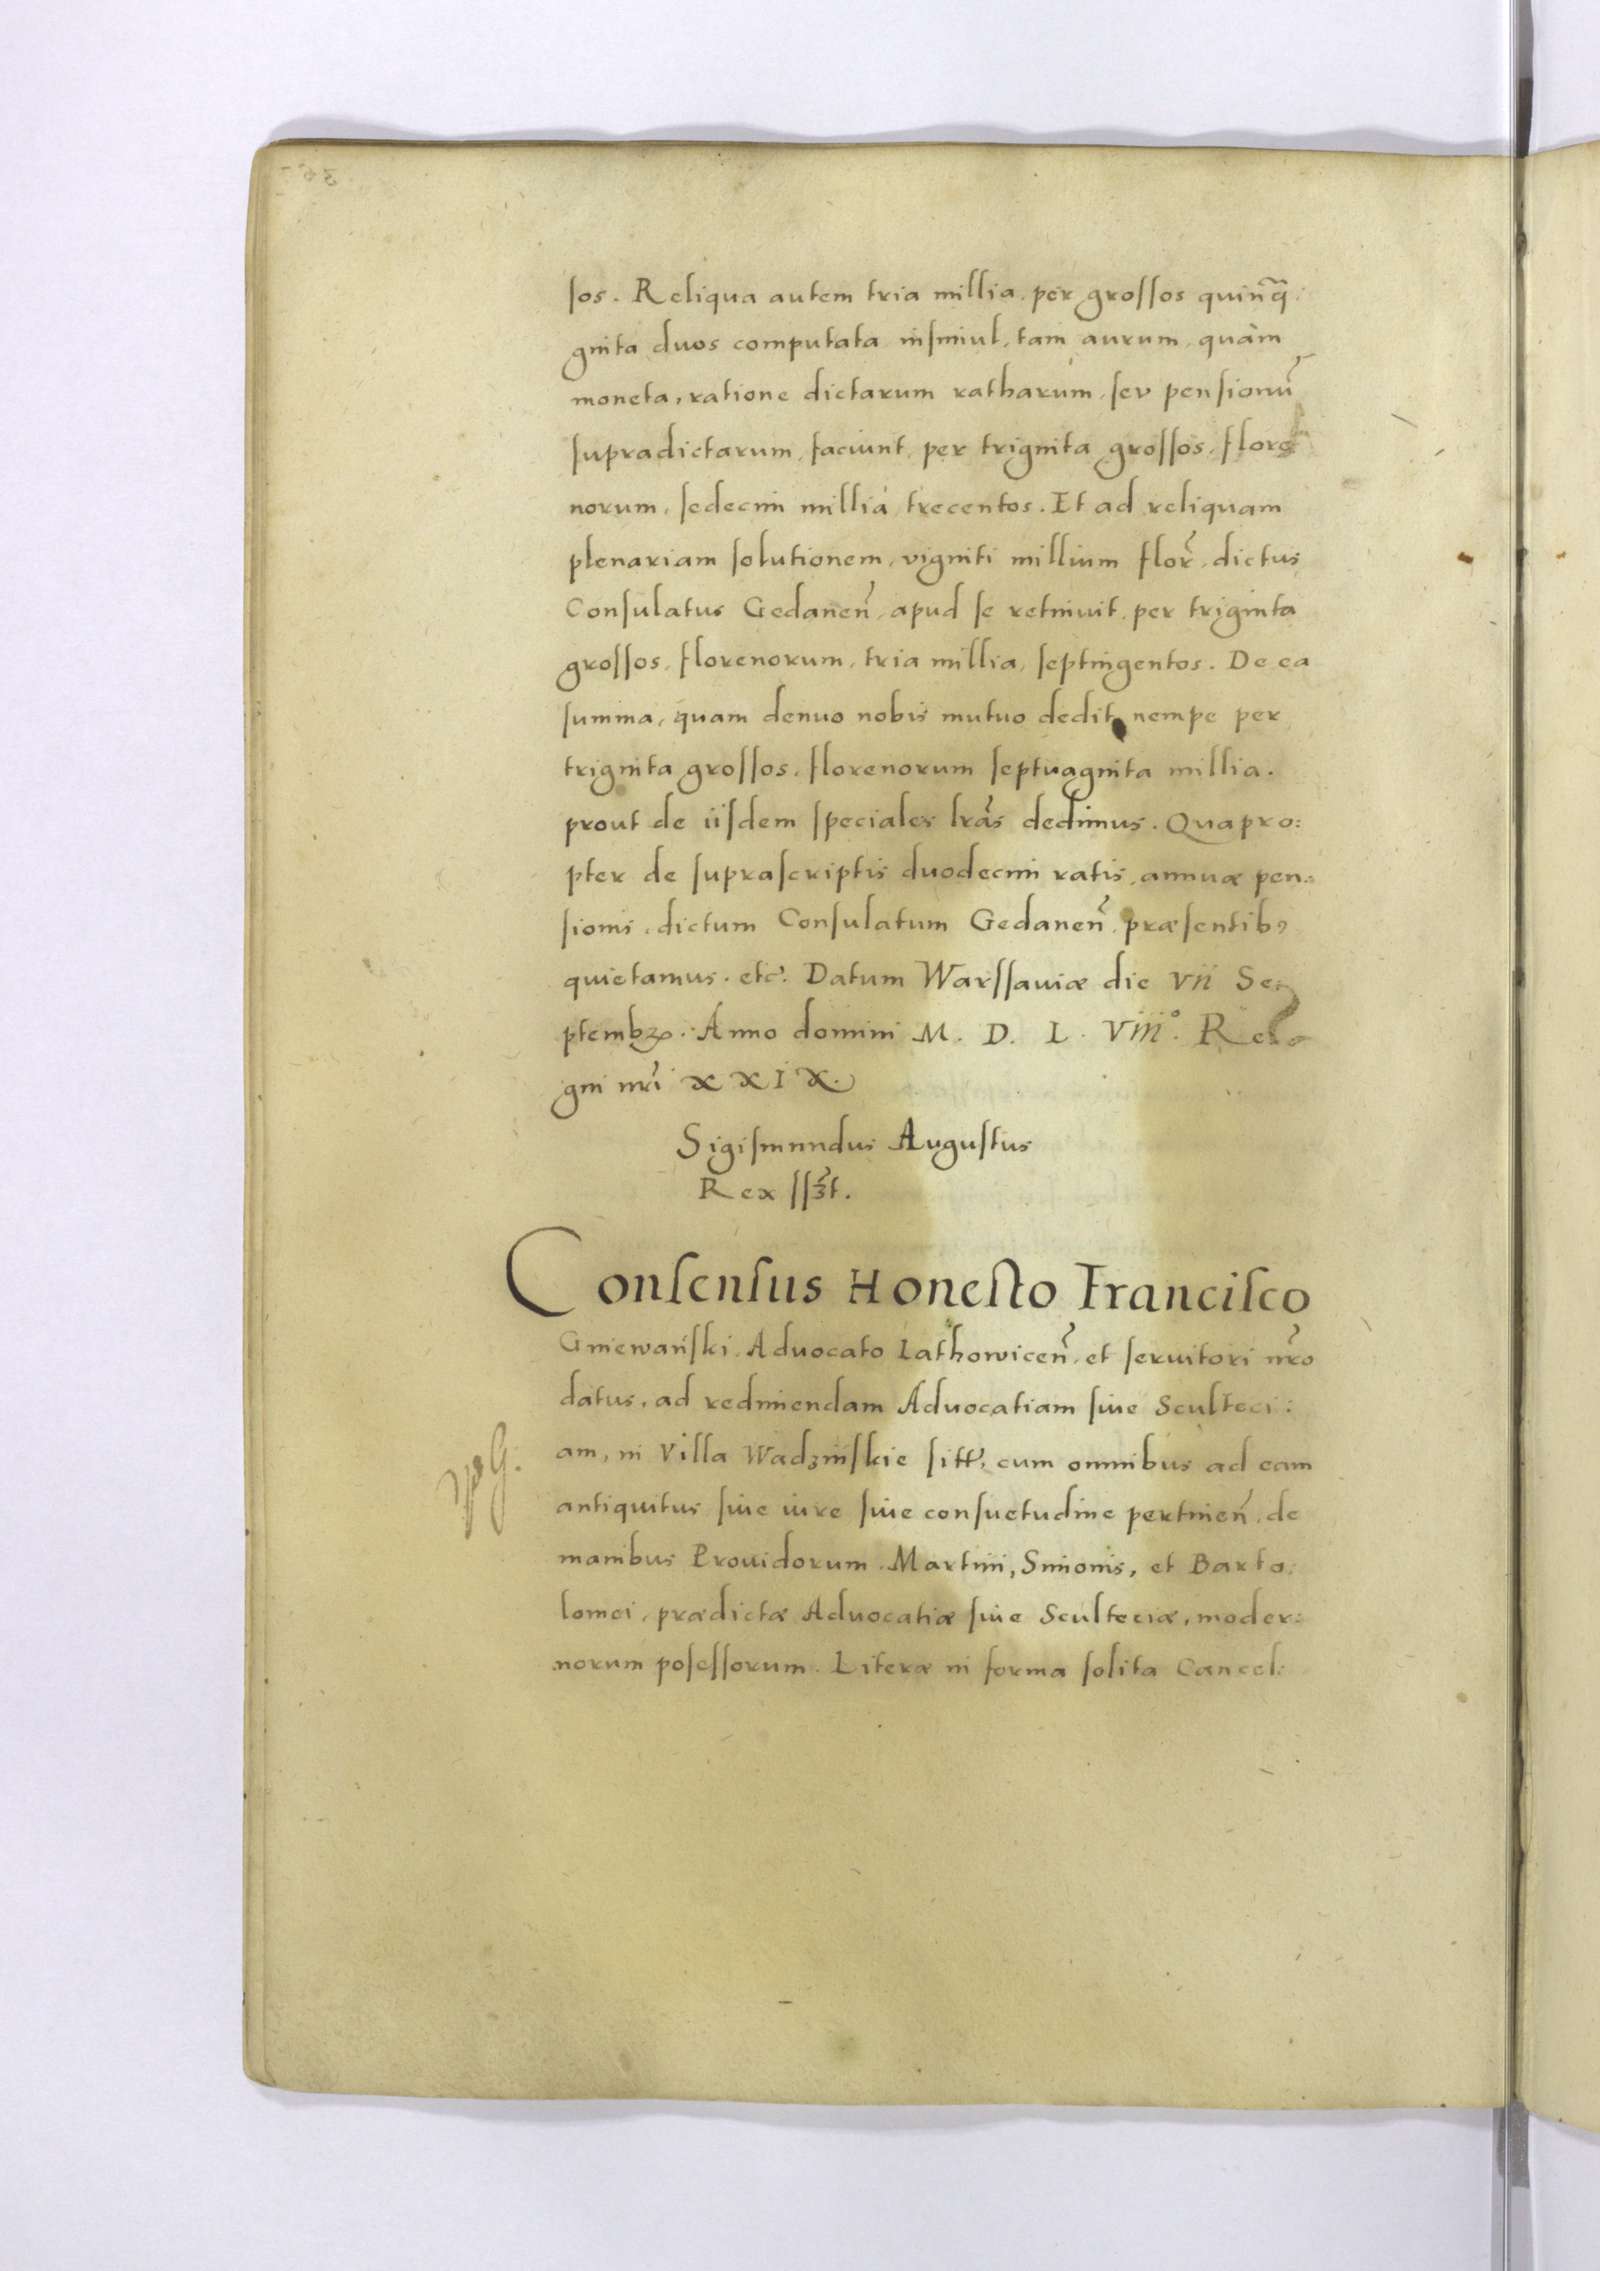 sos. Reliqua autem tria millia, per grossos quinq̃:
ginta duos computata insimul, tam aurum, quàm
moneta, ratione dictarum ratharum, seu pensionũ
supradictarum, faciunt, per triginta grossos, flore
norum, sedecim millia, trecentos. Et ad reliquam
plenariam solutionem, viginti millium flor̃, dictus
Consulatus Gedaneñ, apud se retinuit, per triginta
grossos, florenorum, tria millia, septingentos. De ea
summa, quam denuo nobis mutuo dedit, nempe per
triginta grossos, florenorum septuaginta millia.
prout de iisdem speciales lrãs dedimus. Quapro:
pter de suprascriptis duodecim ratis, annuæ pen:
sionis, dictum Consulatum Gedaneñ, præsentibꝰ
quietamus. etc̃. Datum Warssauiæ die VII Se:
ptembꝝ. Anno domini M. D. L. VIII°. Re
gni nr̃i XXIX.
Sigismundus Augustus
Rex sszt.
Consensus Honesto Francisco
Gniewański, Advocato Lathowiceñ, et seruitori nr̃o
datus, ad redimendam Advocatiam siue Sculteci:
am, in Villa Wadzinskie sitt̃, cum omnibus ad eam
antiquitus siue iure siue consuetudine pertineñ, de
manibus Prouidorum Martini, Simonis, et Barto:
lomei, prædictæ Advocatiæ siue Sculteciæ, moder:
norum posessorum. Literæ in forma solita Cancel: